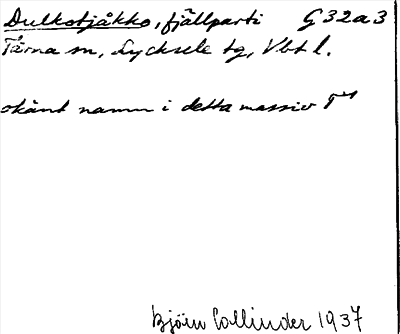 Dulkotjåkko, fjällparti G32a3
Tärna sn, Lycksele tg, Vbt l.
okänt namn i detta massiv
Björn Collinder 1937